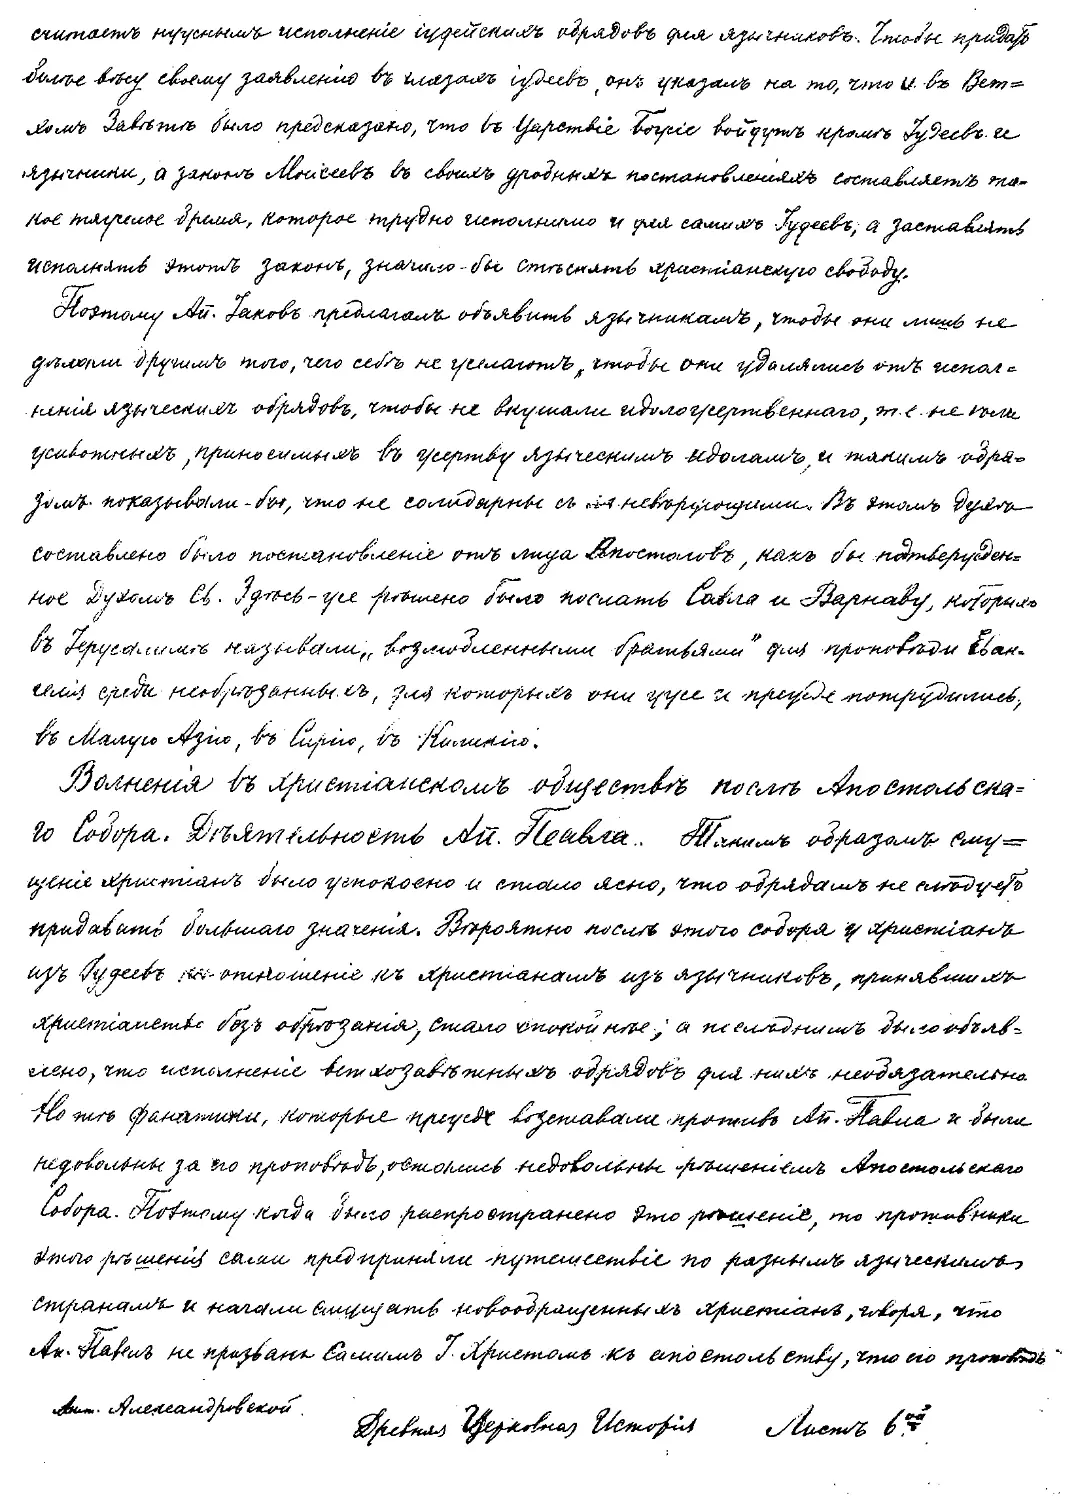 считаетъ нужнымъ исполненіе іудейскихъ обрядовъ для язычниковъ. Чтобы придать
болѣе вѣсу своему заявленію въ глазахъ іудеевъ, онъ указалъ на то, что и въ Вет=
хомъ Завѣтѣ было предсказано, что въ Царствіе Божіе войдутъ кромѣ Іудеевъ и
язычники, а законъ Моисеевъ въ своихъ дробныхъ постановленіяхъ составляетъ та=
кое тяжелое бремя, которое трудно исполнимо и для самихъ Іудеевъ; а заставлять
исполнять этотъ законъ, значило-бы стѣснять христіанскую свободу.
Поэтому Ап. Іаковъ предлагалъ объявить язычникамъ, чтобы они лишь не
дѣлали другимъ того, чего себѣ не желаютъ, чтобы они удалялись отъ испол=
ненія языческихъ обрядовъ, чтобы не вкушали идоложертвеннаго, т.е. не ѣли
животныхъ, приносимыхъ въ жертву языческимъ идоламъ, и такимъ обра=
зомъ показывали-бы, что не солидарны съ невѣрующими. Въ этомъ духѣ
составлено было постановленіе отъ лица Апостоловъ, какъ бы подтвержден=
ное Духомъ Св. Здѣсь-же рѣшено было послать Савла и Варнаву, которыхъ
въ Іерусалимѣ называли „возлюбленными братьями" для проповѣди Еван=
гелія среди необрѣзанныхъ, для которыхъ они уже и прежде потрудились,
въ Малую Азію, въ Сирію, въ Киликію.
Волненія въ христіанскомъ обществѣ послѣ Апостольска=
го Собора. Дѣятельность Ап. Павла. Такимъ образомъ сму=
щеніе христіанъ было успокоено и стало ясно, что обрядамъ не слѣдуетъ
придавать большаго значенія. Вѣроятно послѣ этого собора у христіанъ
изъ Іудеевъ отношеніе къ христіанамъ изъ язычниковъ, принявшихъ
христіанство безъ обрѣзанія, стало спокойнѣе; а послѣднимъ было объяв=
лено, что исполненіе ветхозавѣтныхъ обрядовъ для нихъ необязательно.
Но тѣ фанатики, которые прежде возставали противъ Ап. Павла и были
недовольны за его проповѣдь, остались недовольны рѣшеніемъ Апостольскаго
Собора. Поэтому когда было распространено это рѣшеніе, то противники
этого рѣшенія сами предприняли путешествіе по разнымъ языческимъ
странамъ и начали смущать новообращенныхъ христіанъ, говоря, что
Ап. Павелъ не призванъ Самимъ І. Христомъ къ апостольству, что его проповѣдь
Лит. Александровской.
Древняя Церковная Исторія Листъ 6ой